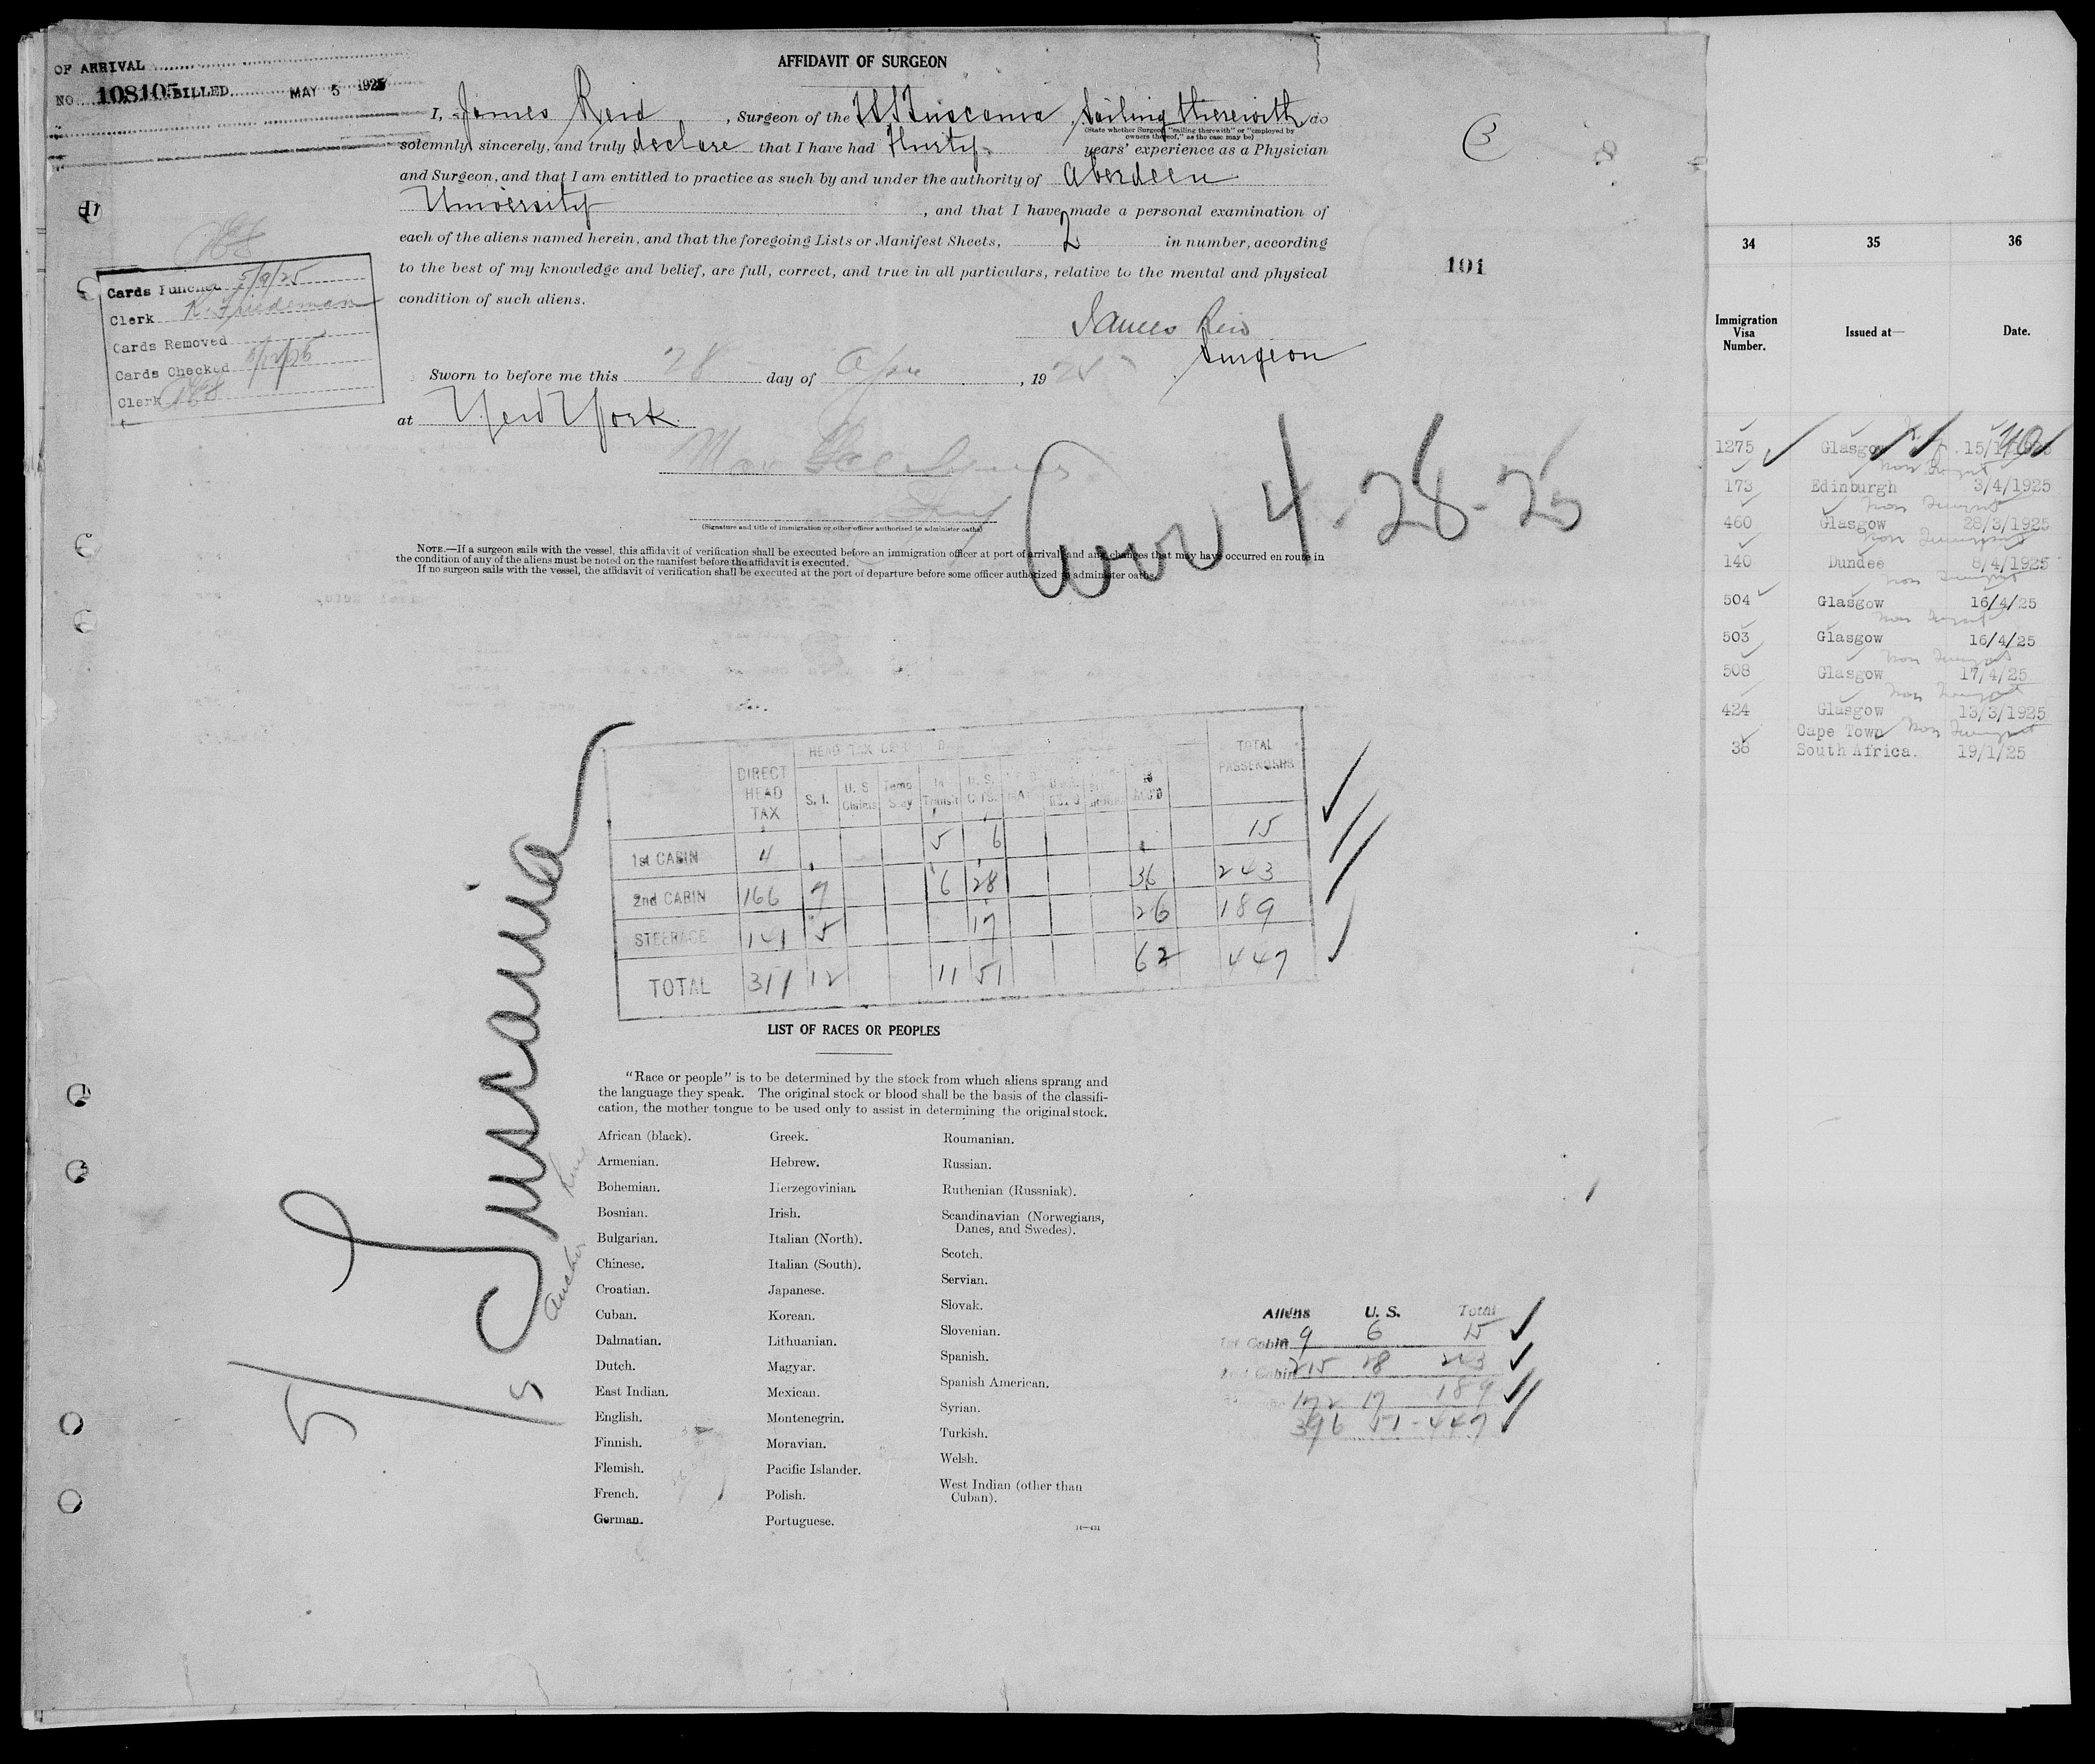 AFFIDAVIT OF SURGEON
OF ARRIVAL
NO. 108105 BILLED MAY 5 1925
I, James Reid, Surgeon of the TSS Tuscania, Sailing therewith do
(State whether Surgeon "sailing therewith" or "employed by
owners thereof," as the case may be)
solemnly, sincerely, and truly declare that I have had Thirty years' experience as a Physician
and Surgeon, and that I am entitled to practice as such by and under the authority of Aberdeen
University, and that I have made a personal examination of
each of the aliens named herein, and that the foregoing Lists or Manifest Sheets, 2 in number, according
to the best of my knowledge and belief, are full, correct, and true in all particulars, relative to the mental and physical
condition of such aliens.
James Reid
Surgeon
Sworn to before me this 28 day of Apr, 1925
at New York
(Signature and title of immigration or other officer authorized to administer oaths)
NOTE.—If a surgeon sails with the vessel, this affidavit of verification shall be executed before an immigration officer at port of arrival, and any changes that may have occurred en route in
the condition of any of the aliens must be noted on the manifest before the affidavit is executed.
If no surgeon sails with the vessel, the affidavit of verification shall be executed at the port of departure before some officer authorized to administer oaths.
3
101
Cards Punched 5/9/25
Clerk R. Friedeman
Cards Removed
Cards Checked 5/12/25
Clerk
Arr 4-28-25
Tuscania
Anchor Line
5/5
DIRECT HEAD TAX
HEAD TAX
S. I.
U. S. Claims
Temp Stay
In Transit
U. S. CITS.
TOTAL PASSENGERS
1st CABIN 4 5 6 15
2nd CABIN 166 7 6 28 36 243
STEERAGE 141 5 17 26 189
TOTAL 311 12 11 51 62 447
LIST OF RACES OR PEOPLES
"Race or people" is to be determined by the stock from which aliens sprang and
the language they speak. The original stock or blood shall be the basis of the classifi-
cation, the mother tongue to be used only to assist in determining the original stock.
African (black).
Armenian.
Bohemian.
Bosnian.
Bulgarian.
Chinese.
Croatian.
Cuban.
Dalmatian.
Dutch.
East Indian.
English.
Finnish.
Flemish.
French.
German.
Greek.
Hebrew.
Herzegovinian.
Irish.
Italian (North).
Italian (South).
Japanese.
Korean.
Lithuanian.
Magyar.
Mexican.
Montenegrin.
Moravian.
Pacific Islander.
Polish.
Portuguese.
Roumanian.
Russian.
Ruthenian (Russniak).
Scandinavian (Norwegians,
Danes, and Swedes).
Scotch.
Servian.
Slovak.
Slovenian.
Spanish.
Spanish American.
Syrian.
Turkish.
Welsh.
West Indian (other than
Cuban).
Aliens U. S. Total
1st Cabin 9 6 15
2nd Cabin 215 28 243
172 17 189
396 51 - 447
34 35 36
Immigration Visa Number. Issued at— Date.
1275 Glasgow
173 Edinburgh 3/4/1925
460 Glasgow 28/3/1925
140 Dundee 8/4/1925
504 Glasgow 16/4/25
503 Glasgow 16/4/25
508 Glasgow 17/4/25
424 Glasgow 13/3/1925
Cape Town
38 South Africa. 19/1/25